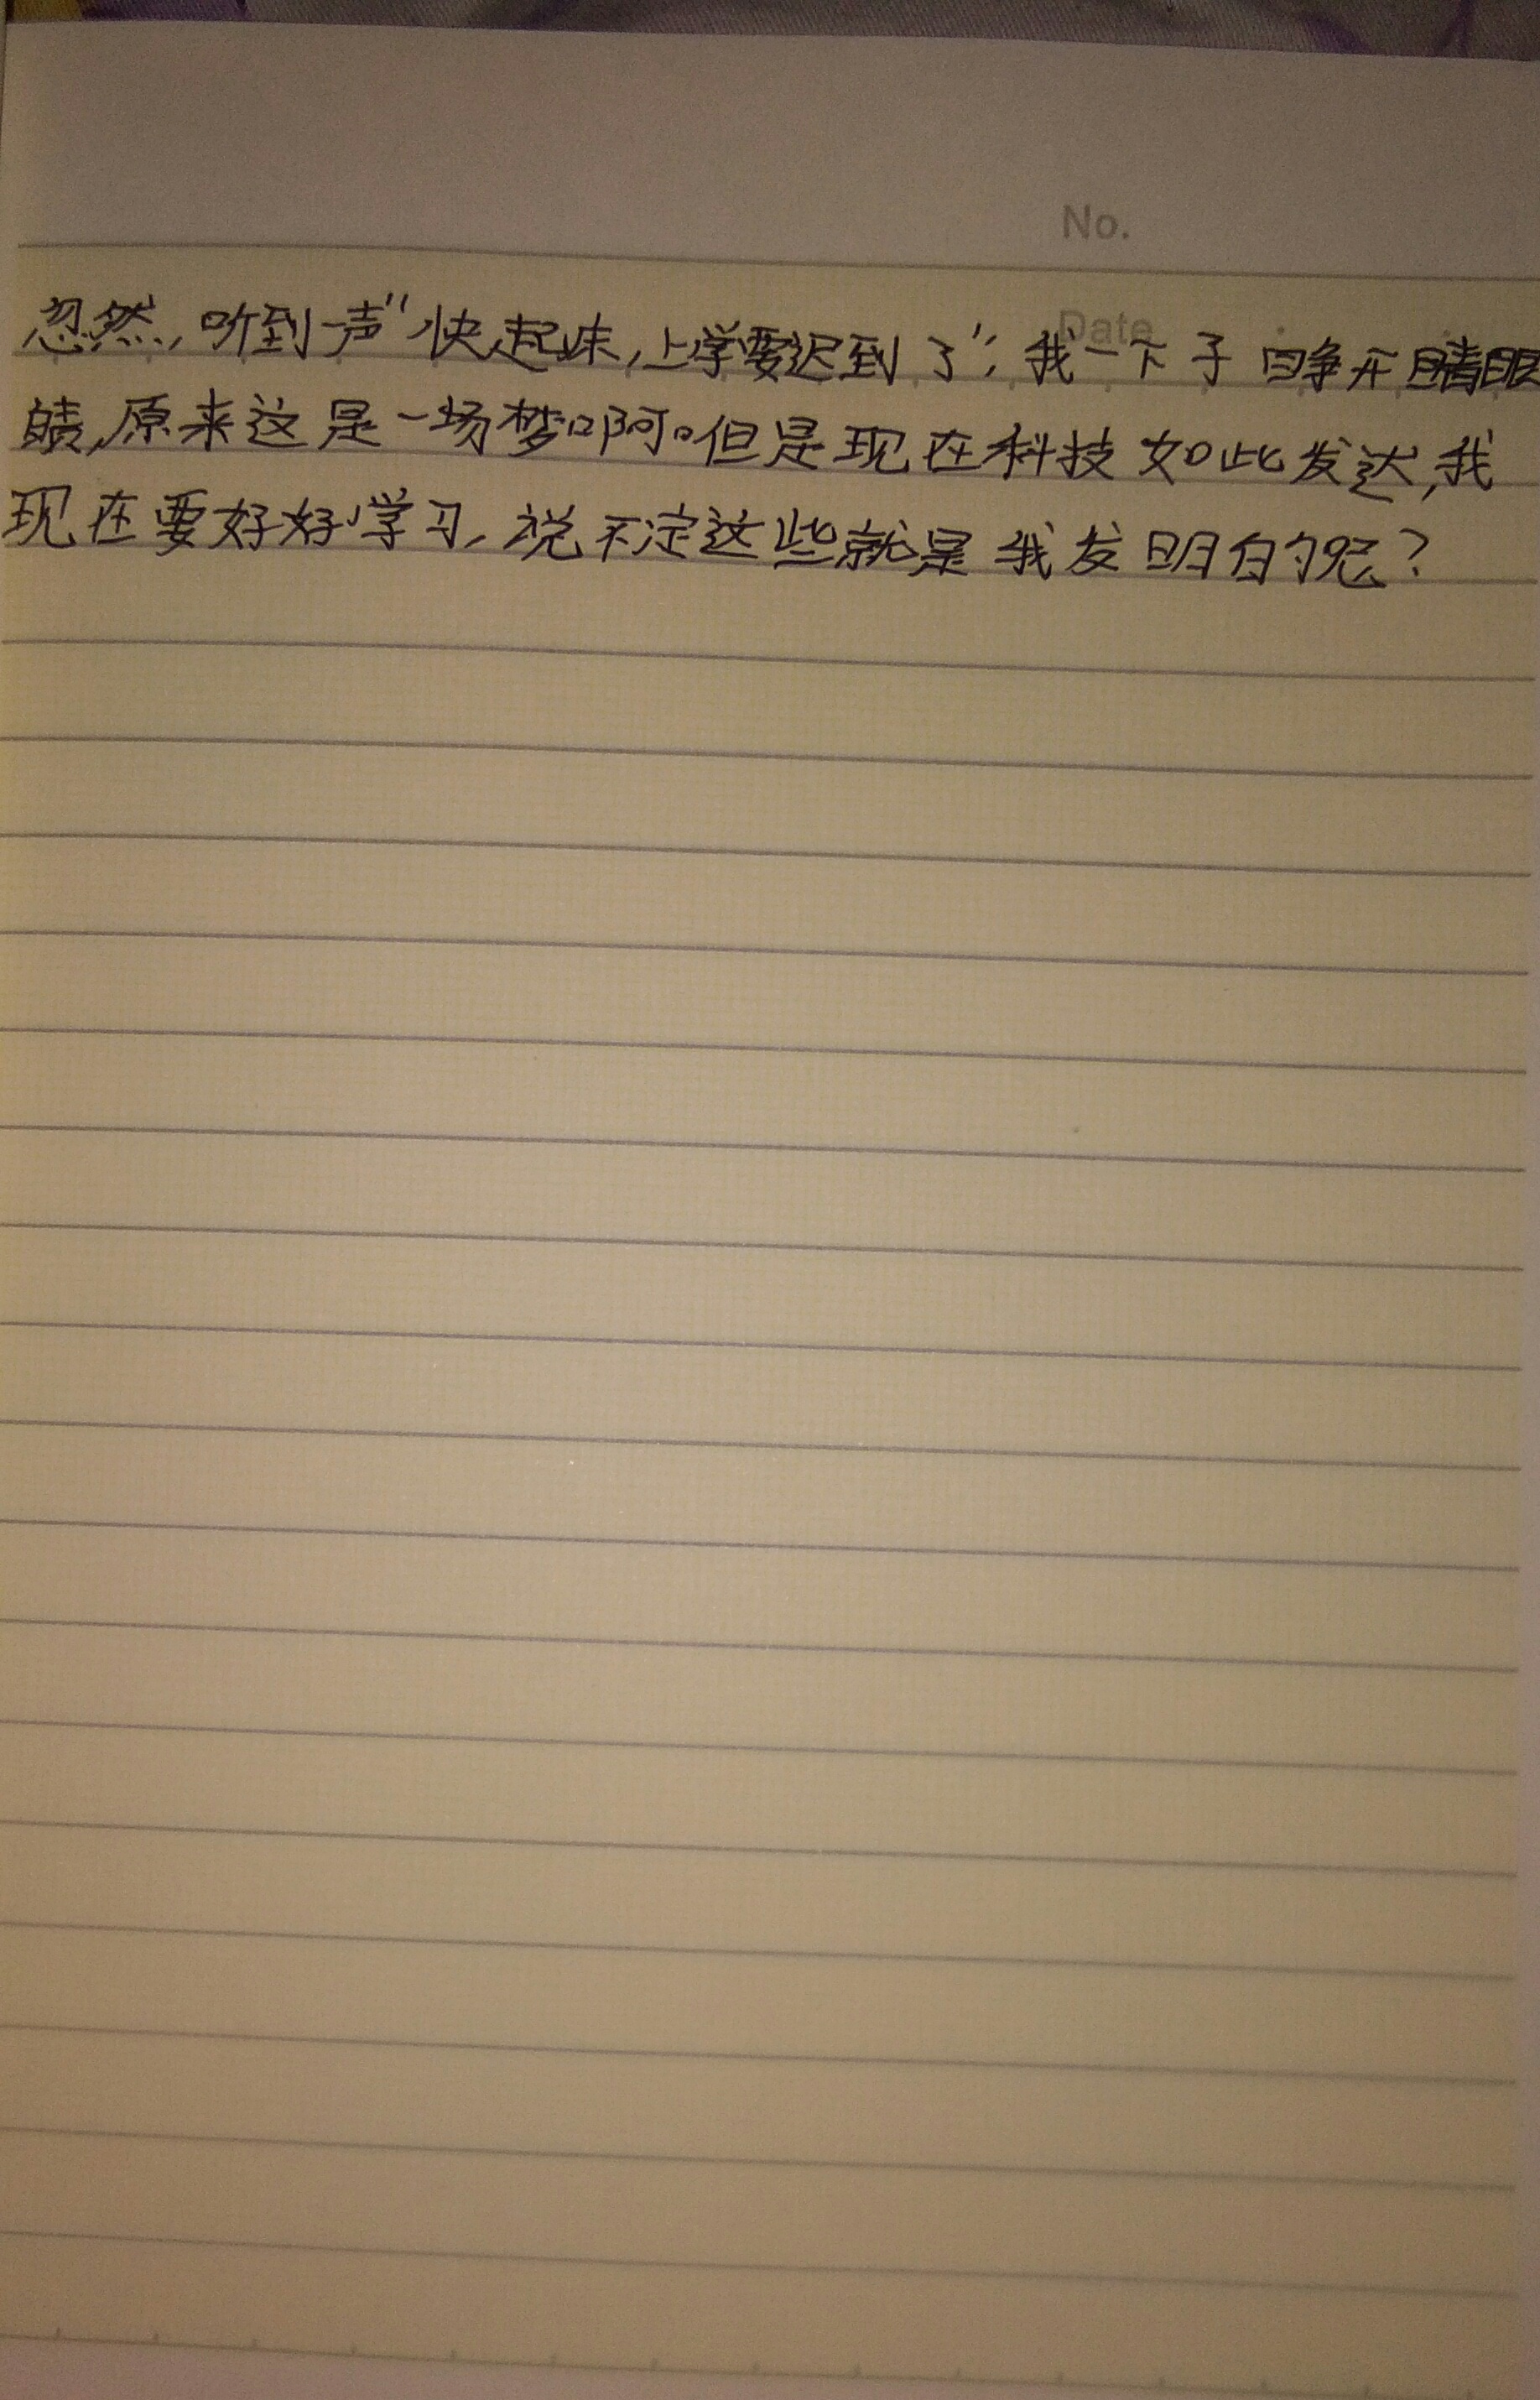 No.
Date
忽然,听到一声"快起床,上学要迟到了",我一下子睁开睛眼
睛,原来这是一场梦啊。但是现在科技如此发达,我
现在要好好学习,说不定这些就是我发明的呢?